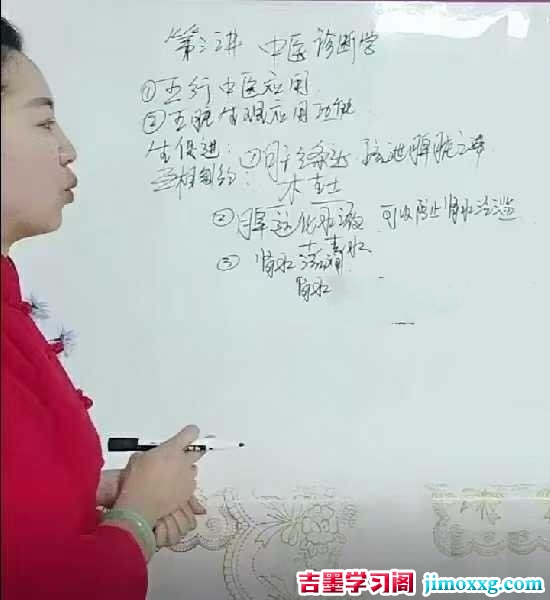 第三讲 中医诊断学
①五行中医应用
②五脏生理应用功能
生促进:
受相制约: ①肝主条达 疏泄脾脏之滞
木克土
②脾运化水液 可以防止肾水泛滥
土克水
③肾水
肾水
吉墨学习阁 jimoxxg.com